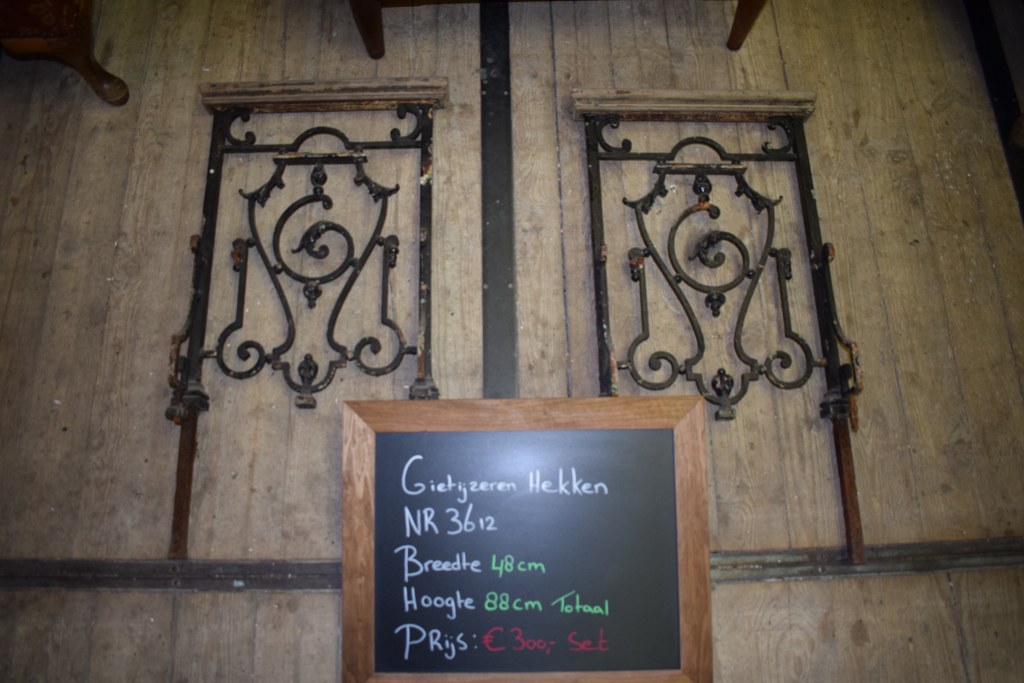 Gietijzeren Hekken
NR 3612
Breedte 48cm
Hoogte 88cm Totaal
Prijs: € 300,- set